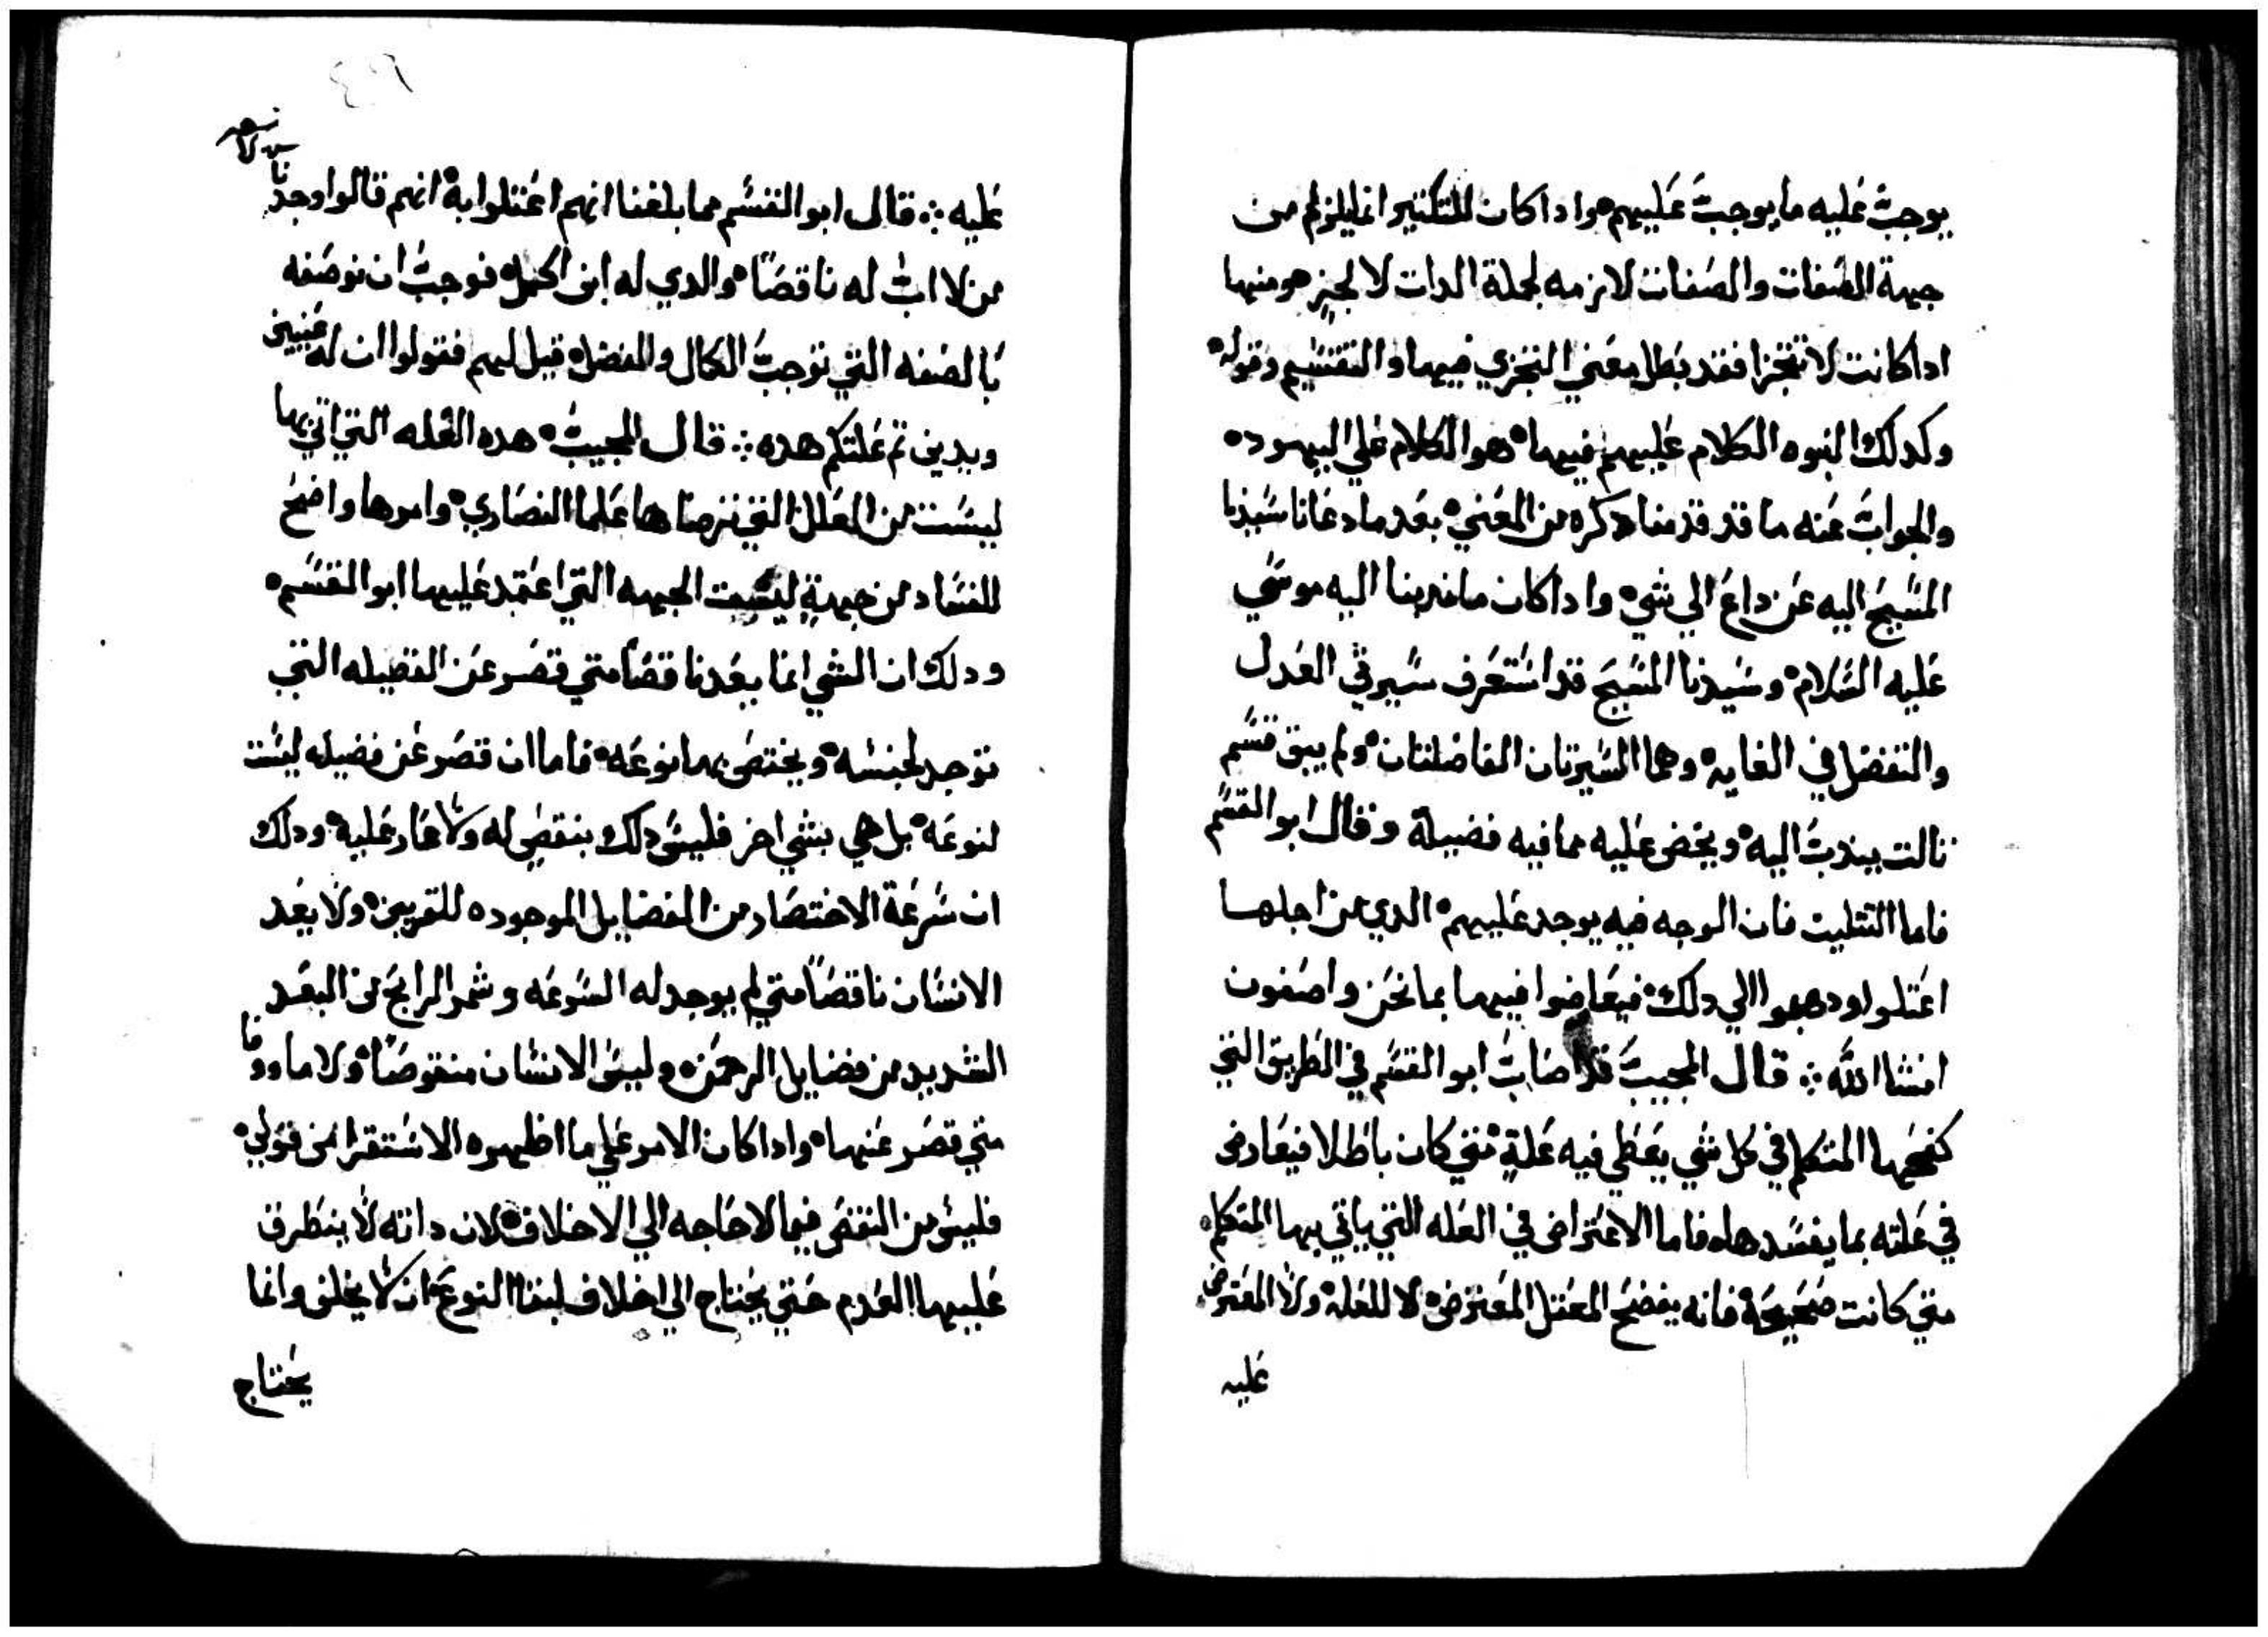 يوجب عليه ما يوجب عليهم واداكان التكتير انما يلزم من
جهة الصفات والصفات لازمه لجملة الدات لا لجز هو منها
اداكانت لا تتجزا فقد بطل معني التجزي فيها والتقسيم وقوله
وكدلك النبوه الكلام عليهم فيها هو الكلام علي اليهود
والجواب عنه ما قد قدمنا دكره من المعني بعد ما دعانا سيدنا
المسيح اليه عن داع الي شي واداكان ما ندبنا اليه موسي
عليه السلام وسيدنا المسيح قد استعرف سيرتي العدل
والتفضل في الغايه وهما السيرتان الفاضلتان ولم يبق قسم
تالت يندب اليه ويحض عليه مما فيه فضيلة وقال ابو القسم
فاما التتليت فان الوجه فيه يوجد عليهم الدي من اجلها
اعتلوا ودهبوا الي دلك فيعارضوا فيها بما نحن واصفون
انشا الله قال المجيب قد اصاب ابو القسم في الطريق التي
المتكلم في كل شي يعطي فيه علة متي كان باطلا فيعارض
في علته بما يفسدها فاما الاعتراض في العله التي ياتي بها المتكلم
متي كانت صحيحة فانه يفضح المعتل المعترض لا للعله ولا المعترض
عليه
نسعه
لا
عليه قال ابو القسم مما بلغنا انهم اعتلوا به انهم قالوا وجدنا
من لا اب له ناقصا والدي له ابن اكمل فوجب ان نوصفه
بالصفه التي توجب الكمال والفضل قيل لهم فقولوا ان له عينين
ويدين تم علتكم هده قال المجيب هده العله التي اتي بها
ليست من العلل التي نرضاها علما النصاري وامرها واضح
الفساد من جهة ليست الجهه التي اعتمد عليها ابو القسم
ودلك ان الشي انما يعد ناقصا متي قصر عن الفضيله التي
توجد لجنسه ويختص بها نوعه فاما ان قصر عن فضيله ليست
لنوعه بل هي بشي اخر فليس دلك بنقص له ولا عار عليه ودلك
ان سرعة الاحتضار من الفضايل الموجوده للفرس ولا يعد
الانسان ناقصا متي لم يوجد له السرعه وشم الرايح من البعد
الشديد من فضايل الرخمه وليس الانسان منقوصا ولا ماووفا
متي قصر عنها واداكان الامر علي ما اظهره الاستقرا من قولي
فليس من النقص فيما لا حاجه الي الاخلاف لان داته لا يتطرق
عليها العدم حتي يحتاج الي اخلاف لبقا النوع ان لا يخلف وانما
يحتاج